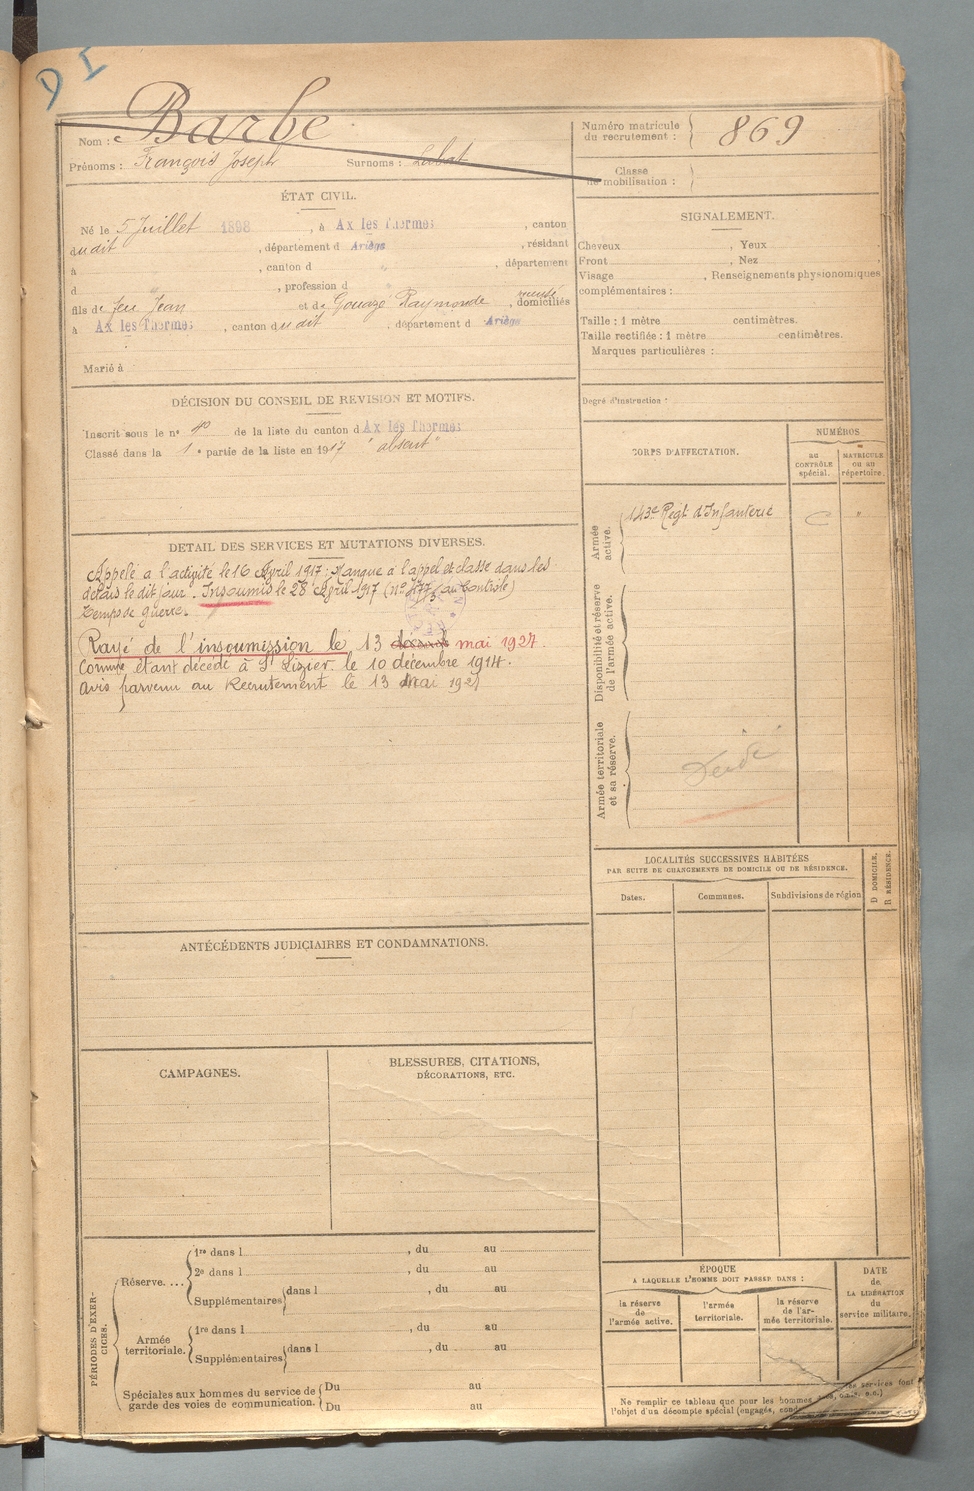 D I
Nom : Barbe
Prénoms : François Joseph Surnoms : Labat
Numéro matricule
du recrutement : 869
Classe
de mobilisation :
ÉTAT CIVIL.
Né le 5 Juillet 1898, à Ax les Thermes, canton
dudit, département d Ariège, résidant
à , canton d " , département
d " , profession d
fils de feu Jean et de Gouazé Raymonde, domiciliés
à Ax les Thermes, canton dudit, département d Ariège
Marié à
SIGNALEMENT.
Cheveux , Yeux .
Front , Nez
Visage , Renseignements physionomiques
complémentaires :
Taille : 1 mètre centimètres.
Taille rectifiée : 1 mètre centimètres.
Marques particulières :
Degré d'instruction :
DÉCISION DU CONSEIL DE REVISION ET MOTIFS.
Inscrit sous le n° de la liste du canton d Ax les Thermes
Classé dans la 1e partie de la liste en 1917 "absent"
CORPS D'AFFECTATION.
NUMÉROS
au
CONTRÔLE
spécial.
MATRICULE
ou au
répertoire.
Armée
active.
143e Régt d'Infanterie "
Disponibilité et réserve
de l'armée active.
Armée territoriale
et sa réserve.
DÉTAIL DES SERVICES ET MUTATIONS DIVERSES.
Appelé à l'activité le 16 Avril 1917 : Manque à l'appel et classé dans les
délais le dit jour. Insoumis le 28 Avril 1917 (n° au Contrôle)
temps de guerre.
Rayé de l'insoumission le 13 mai 1927.
Comme étant décédé à St Lizier le 10 décembre 1914.
Avis parvenu au Recrutement le 13 Mai 1927
LOCALITÉS SUCCESSIVES HABITÉES
PAR SUITE DE CHANGEMENTS DE DOMICILE OU DE RÉSIDENCE.
Dates.
Communes.
Subdivisions de région
D DOMICILE.
R RÉSIDENCE.
ANTÉCÉDENTS JUDICIAIRES ET CONDAMNATIONS.
CAMPAGNES.
BLESSURES, CITATIONS,
DÉCORATIONS, ETC.
PÉRIODES D'EXER-
CICES.
Réserve. ...
1re dans l , du au
2e dans l , du au
Supplémentaires dans l , du au
Armée
territoriale.
1re dans l , du au
Supplémentaires dans l , du au
Spéciales aux hommes du service de
garde des voies de communication.
Du au
Du au
ÉPOQUE
A LAQUELLE L'HOMME DOIT PASSER DANS :
la réserve
de
l'armée active.
l'armée
territoriale.
la réserve
de l'ar-
mée territoriale.
DATE
de
LA LIBÉRATION
du
service militaire.
Ne remplir ce tableau que pour les hommes
l'objet d'un décompte spécial (engagés,